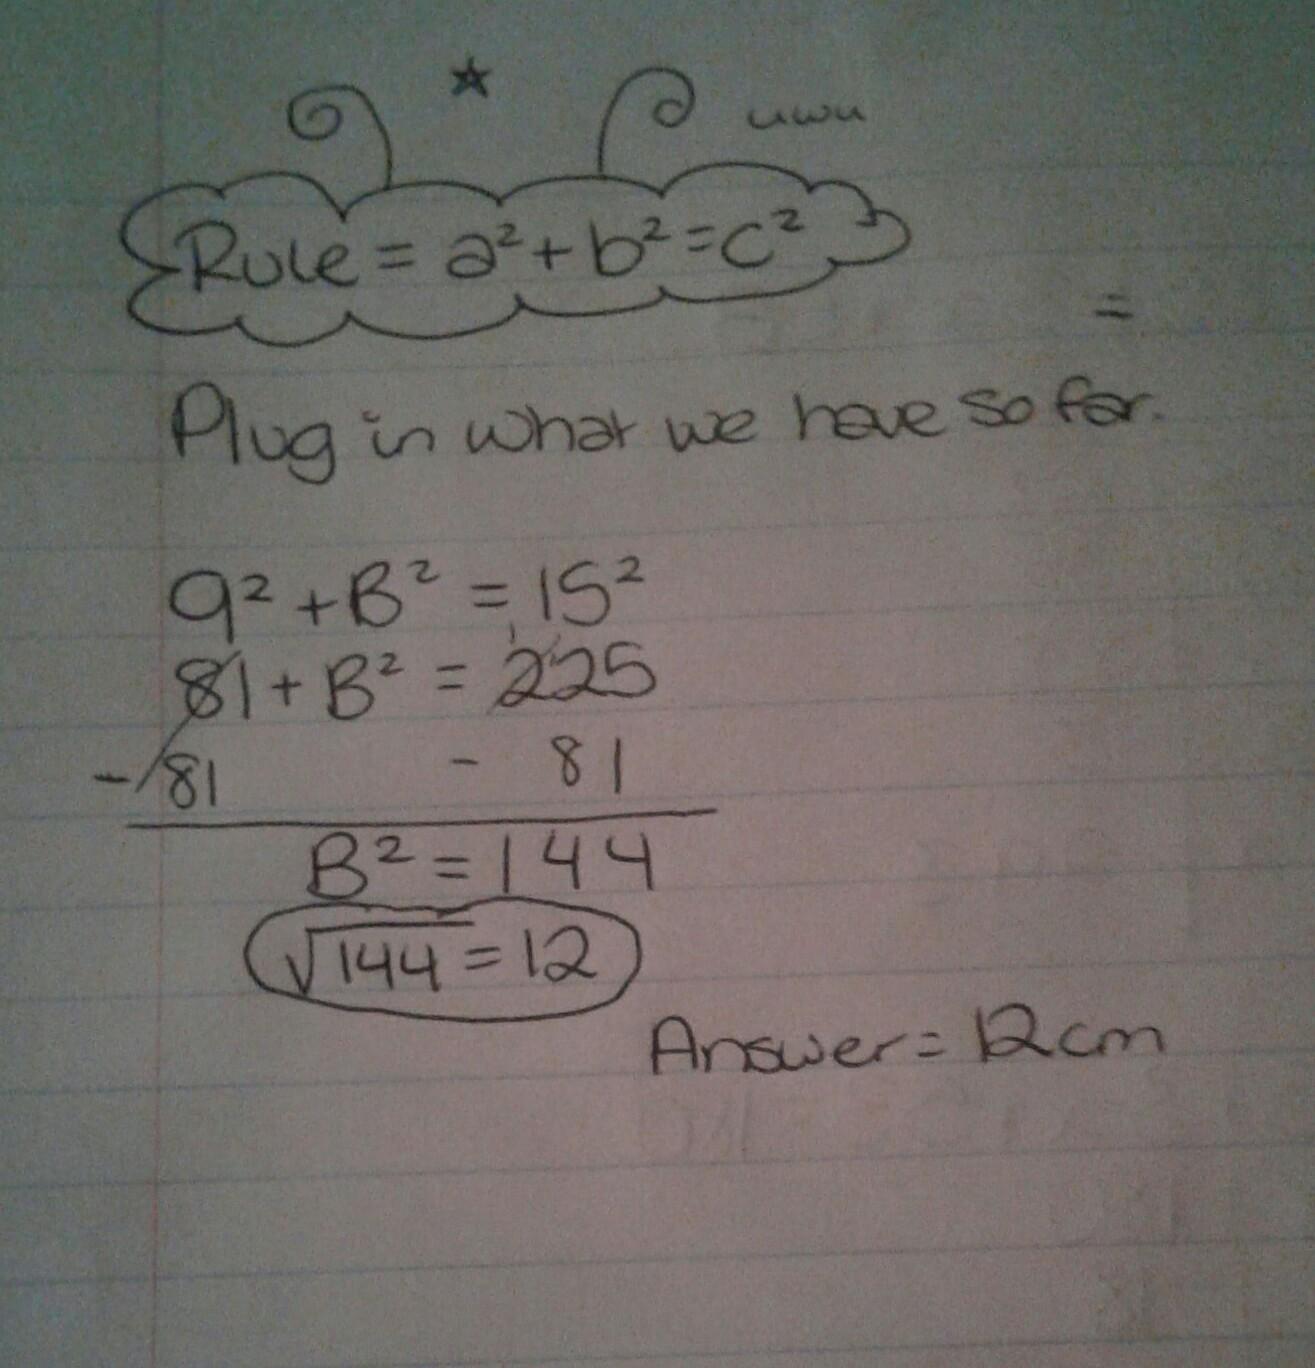 uwu
Rule = a²+b²=c²
=
Plug in what we have so far.
9² + B² = 15²
81 + B² = 225
- 81 - 81
B² = 144
√144 = 12
Answer = 12cm